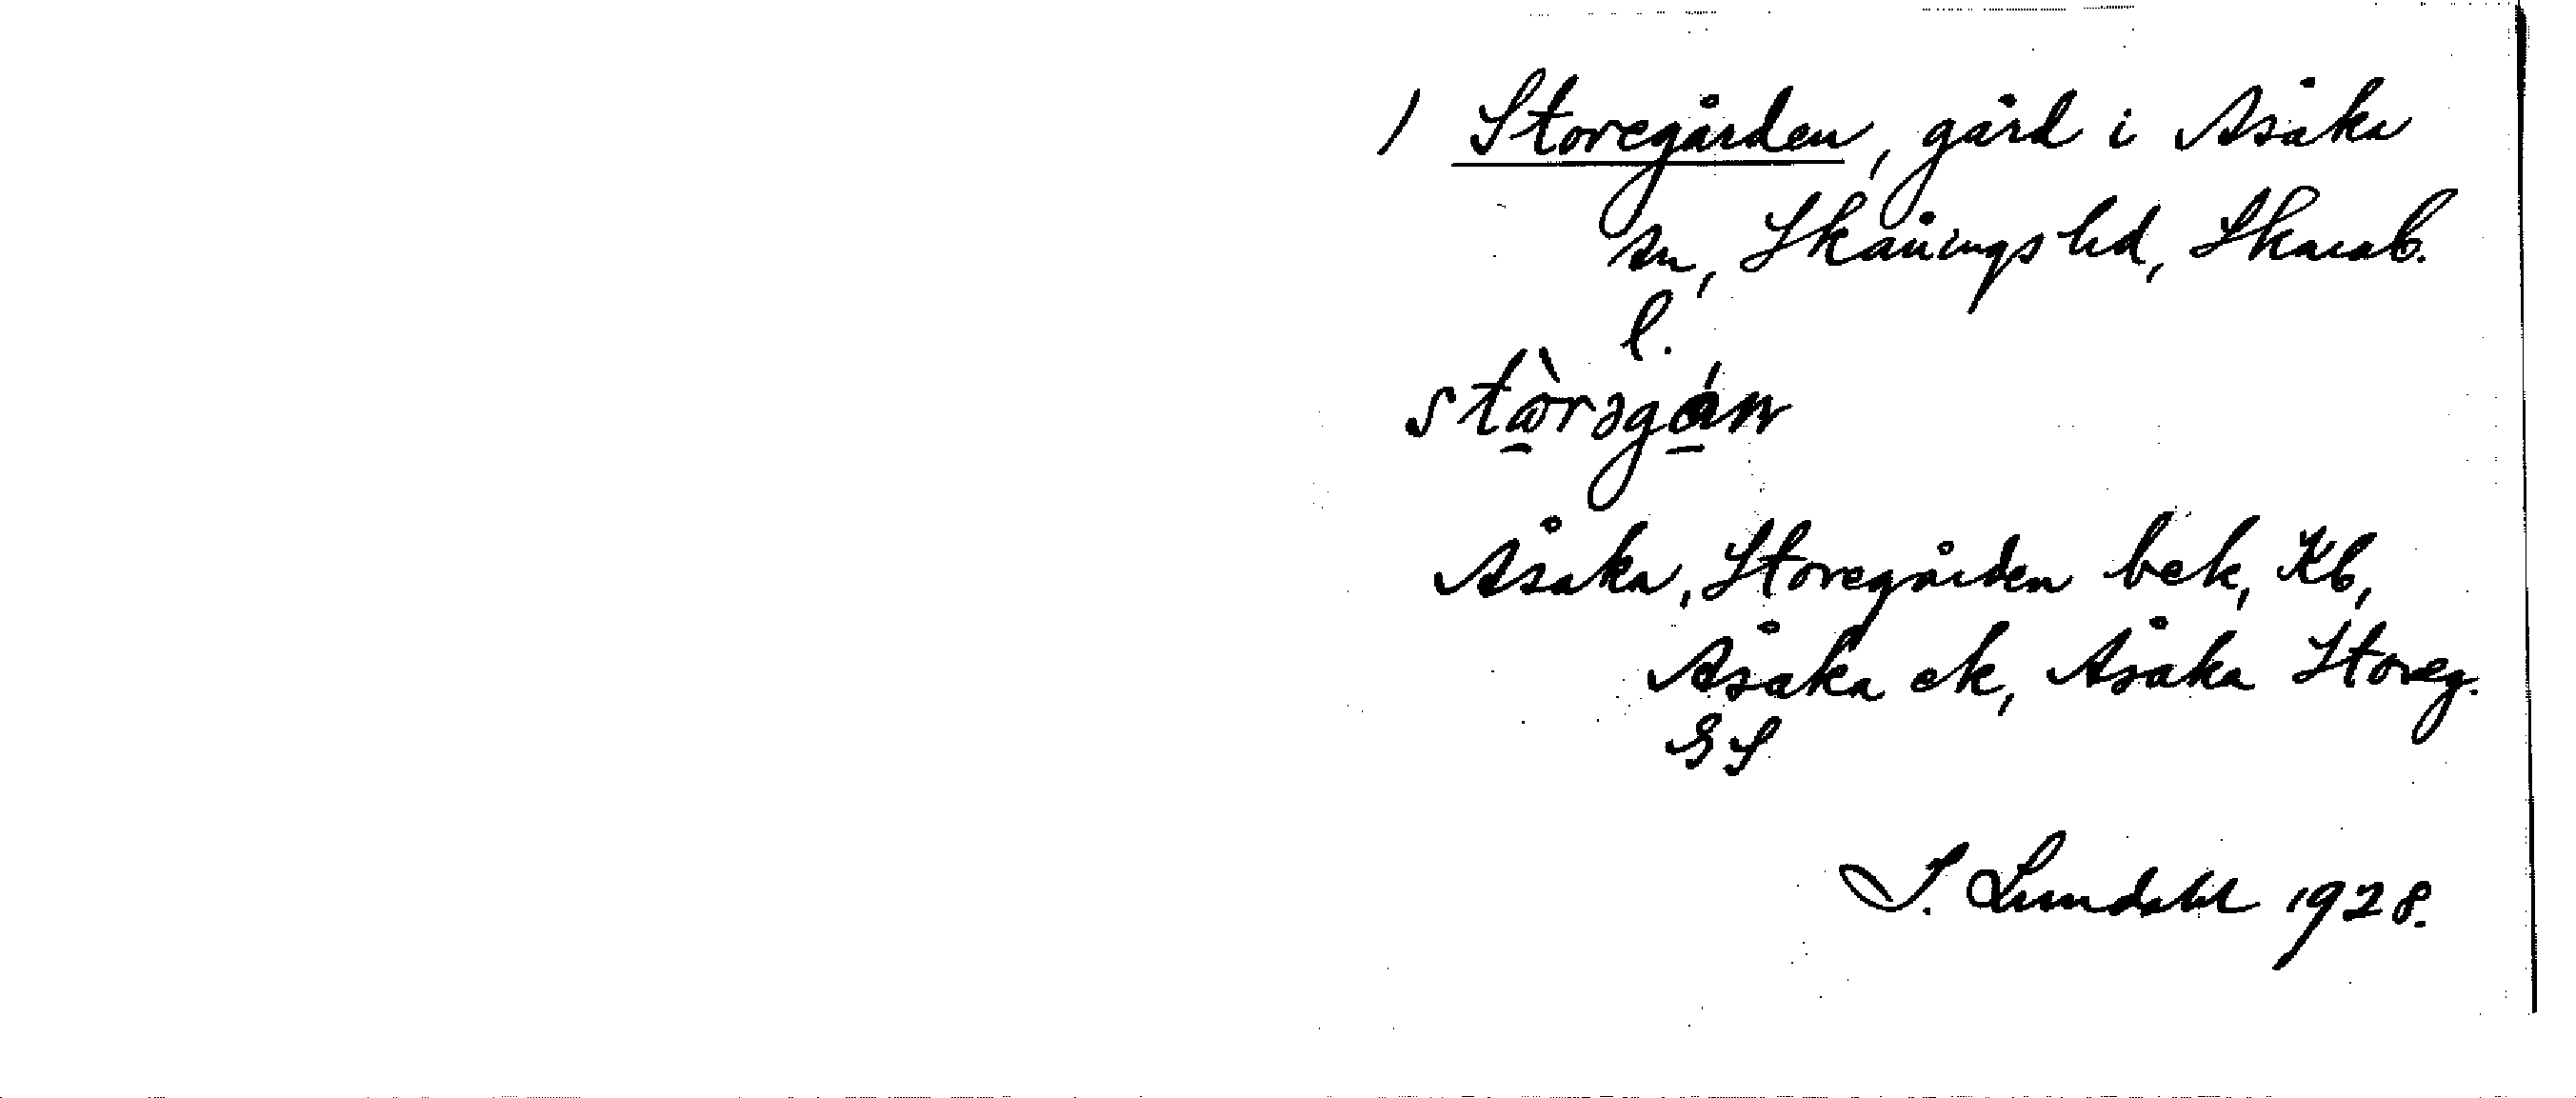 ) Storegården, gård i Åsaka
sn, Skånings hd, Skarab.
l.
stòrəgán
Åsaka, Storegården bek, Kb,
Åsaka ek, Åsaka Storeg.
GS
I. Lundahl 1928.